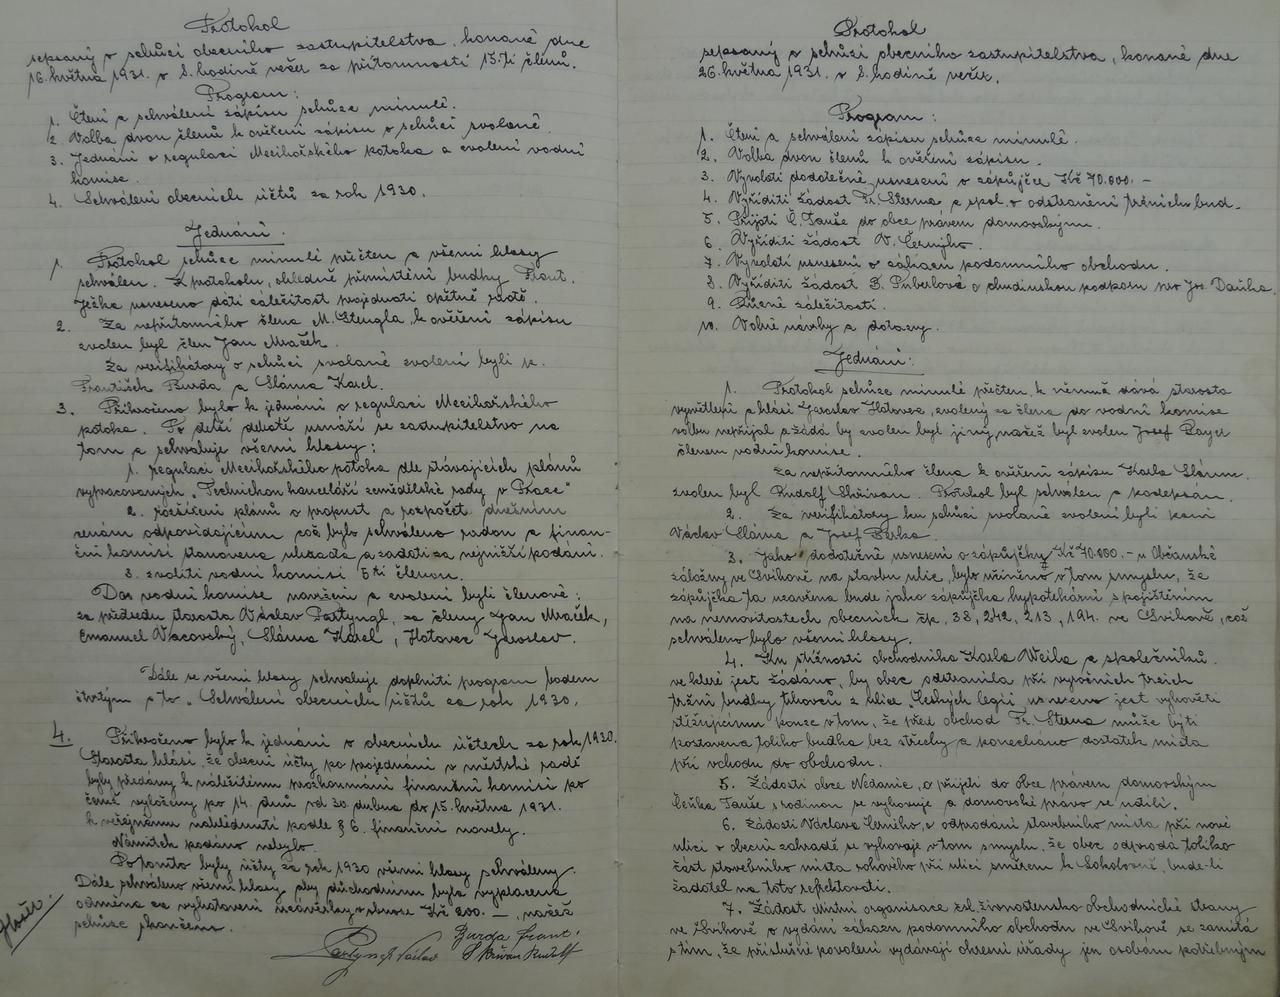 Protokol
sepsaný o schůzi obecního zastupitelstva, konané dne
16. května 1931. v 8. hodině večer za přítomnosti 15.ti členů.
Program:
1. Čtení a schválení zápisu schůze minulé.
2. Volba dvou členů k ověření zápisu o schůzi svolané.
3. Jednání o regulaci Mezihořského potoka a zvolení vodní
komise.
4. Schválení obecních účtů za rok 1930.
Jednání.
1. Protokol schůze minulé přečten a všemi hlasy
schválen. K protokolu, ohledně přemístění budky Frant.
Ježka usneseno dáti záležitost projednati opětně radě.
2. Za nepřítomného člena M. Stengla, k ověření zápisu
zvolen byl člen Jan Mraček.
Za verifikátory o schůzi svolané zvoleni byli p.
František Burda a Sláma Karel.
3. Přikročeno bylo k jednání o regulaci Mezihořského
potoka. Po delší debatě usnáší se zastupitelstvo na
tom a schvaluje všemi hlasy:
1. regulaci Mezihořského potoka dle stávajících plánů
vypracovaných "Technickou kanceláří zemědělské rady v Praze"
2. rozšíření plánů o propust a rozpočet dnešním
cenám odpovídajícímu což bylo schváleno radou a finan-
ční komisí stanovena ulezada a zadati za nejnižší podání.
3. zvoliti vodní komisi 5ti člennou.
Do vodní komise navrženi a zvoleni byli členové:
za předsedu starosta Václav Partyngl, za členy Jan Mraček,
Emanuel Vacovský, Sláma Karel, Hotovec Jaroslav.
Dále se všemi hlasy schvaluje doplniti program bodem
čtvrtým a to "Schválení obecních účtů za rok 1930.
4. Přikročeno bylo k jednání o obecních účtech za rok 1930.
Starosta hlásí, že obecní účty po projednání v městské radě
byly předány k náležitému prozkoumání finanční komisi po
čemž vyloženy po 14. dnů od 30. dubna do 15. května 1931.
k veřejnému nahlédnutí podle § 6. finanční novely.
Námitek podáno nebylo.
Po tomto byly účty za rok 1930 všemi hlasy schváleny.
Dále schváleno všemi hlasy aby důchodnímu byla vyplacena
odměna za vyhotovení uzávěrky v obnose Kč 200.—, načež
schůze skončena.
Partyngl Václav
Burda Frant.
Skřivan Rudolf
Protokol
sepsaný o schůzi obecního zastupitelstva, konané dne
26. května 1931. v 8. hodině večer.
Program:
1. Čtení a schválení zápisu schůze minulé.
2. Volba dvou členů k ověření zápisu.
3. Vyvolati dodatečné usnesení o zápůjčce Kč 70.000.—
4. Vyříditi žádost Fr. Sterna a spol. o odstranění tržních bud.
5. Přijetí Č. Tauše do obce právem domovským.
6. Vyříditi žádost V. Černýho.
7. Vyvolati usnesení o zákazu podomního obchodu.
8. Vyříditi žádost B. Přiberlové o chudinskou podporu pro Jos. Daňka.
9. Různé záležitosti.
10. Volné návrhy a dotazy.
Jednání:
1. Protokol schůze minulé přečten, k němuž dává starosta
vysvětlení a hlásí Jaroslav Hotovec, zvolený za člena do vodní komise
volbu nepřijal a žádá by zvolen byl jiný, načež byl zvolen Josef Payer
členem vodní komise.
Za nepřítomného člena k ověření zápisu Karla Slámu
zvolen byl Rudolf Skřivan. Protokol byl schválen a podepsán.
2. Za verifikátory ku schůzi svolané zvoleni byli páni
Václav Sláma a Josef Berka.
3. Jako dodatečné usnesení o zápůjčky Kč 70.000.— u Občanské
záložny ve Švihově na stavbu ulic, bylo učiněno v tom smyslu, že
zápůjčka ta uzavřena bude jako zápůjčka hypotekární s pojištěním
na nemovitostech obecních čp. 38, 242, 213, 194. ve Švihově, což
schváleno bylo všemi hlasy.
4. Ku stížnosti obchodníka Karla Weila a společníků
ve které jest žádáno, by obec odstranila při výročních trzích
tržní budky trhovců z ulice "Českých legií" usneseno jest vyhověti
stěžujícímu pouze v tom, že před obchod Fr. Sterna může býti
postavena toliko budka bez střechy a ponecháno dostatek místa
při vchodu do obchodu.
5. Žádosti obce Nedanic, o přijetí do obce právem domovským
Čeňka Tauše s rodinou se vyhovuje a domovské právo se udílí.
6. Žádosti Václava Černého, o odprodání stavebního místa při nové
ulici v obecní zahradě se vyhovuje v tom smyslu, že obec odprodá toliko
část stavebního místa rohového při ulici směrem k Sokolovně, bude-li
žadatel na toto reflektovati.
7. Žádost místní organisace čsl. živnostensko obchodnické strany
ve Švihově o vydání zákazu podomního obchodu ve Švihově se zamítá
s tím, že příslušné povolení vydávají okresní úřady jen osobám potřebným